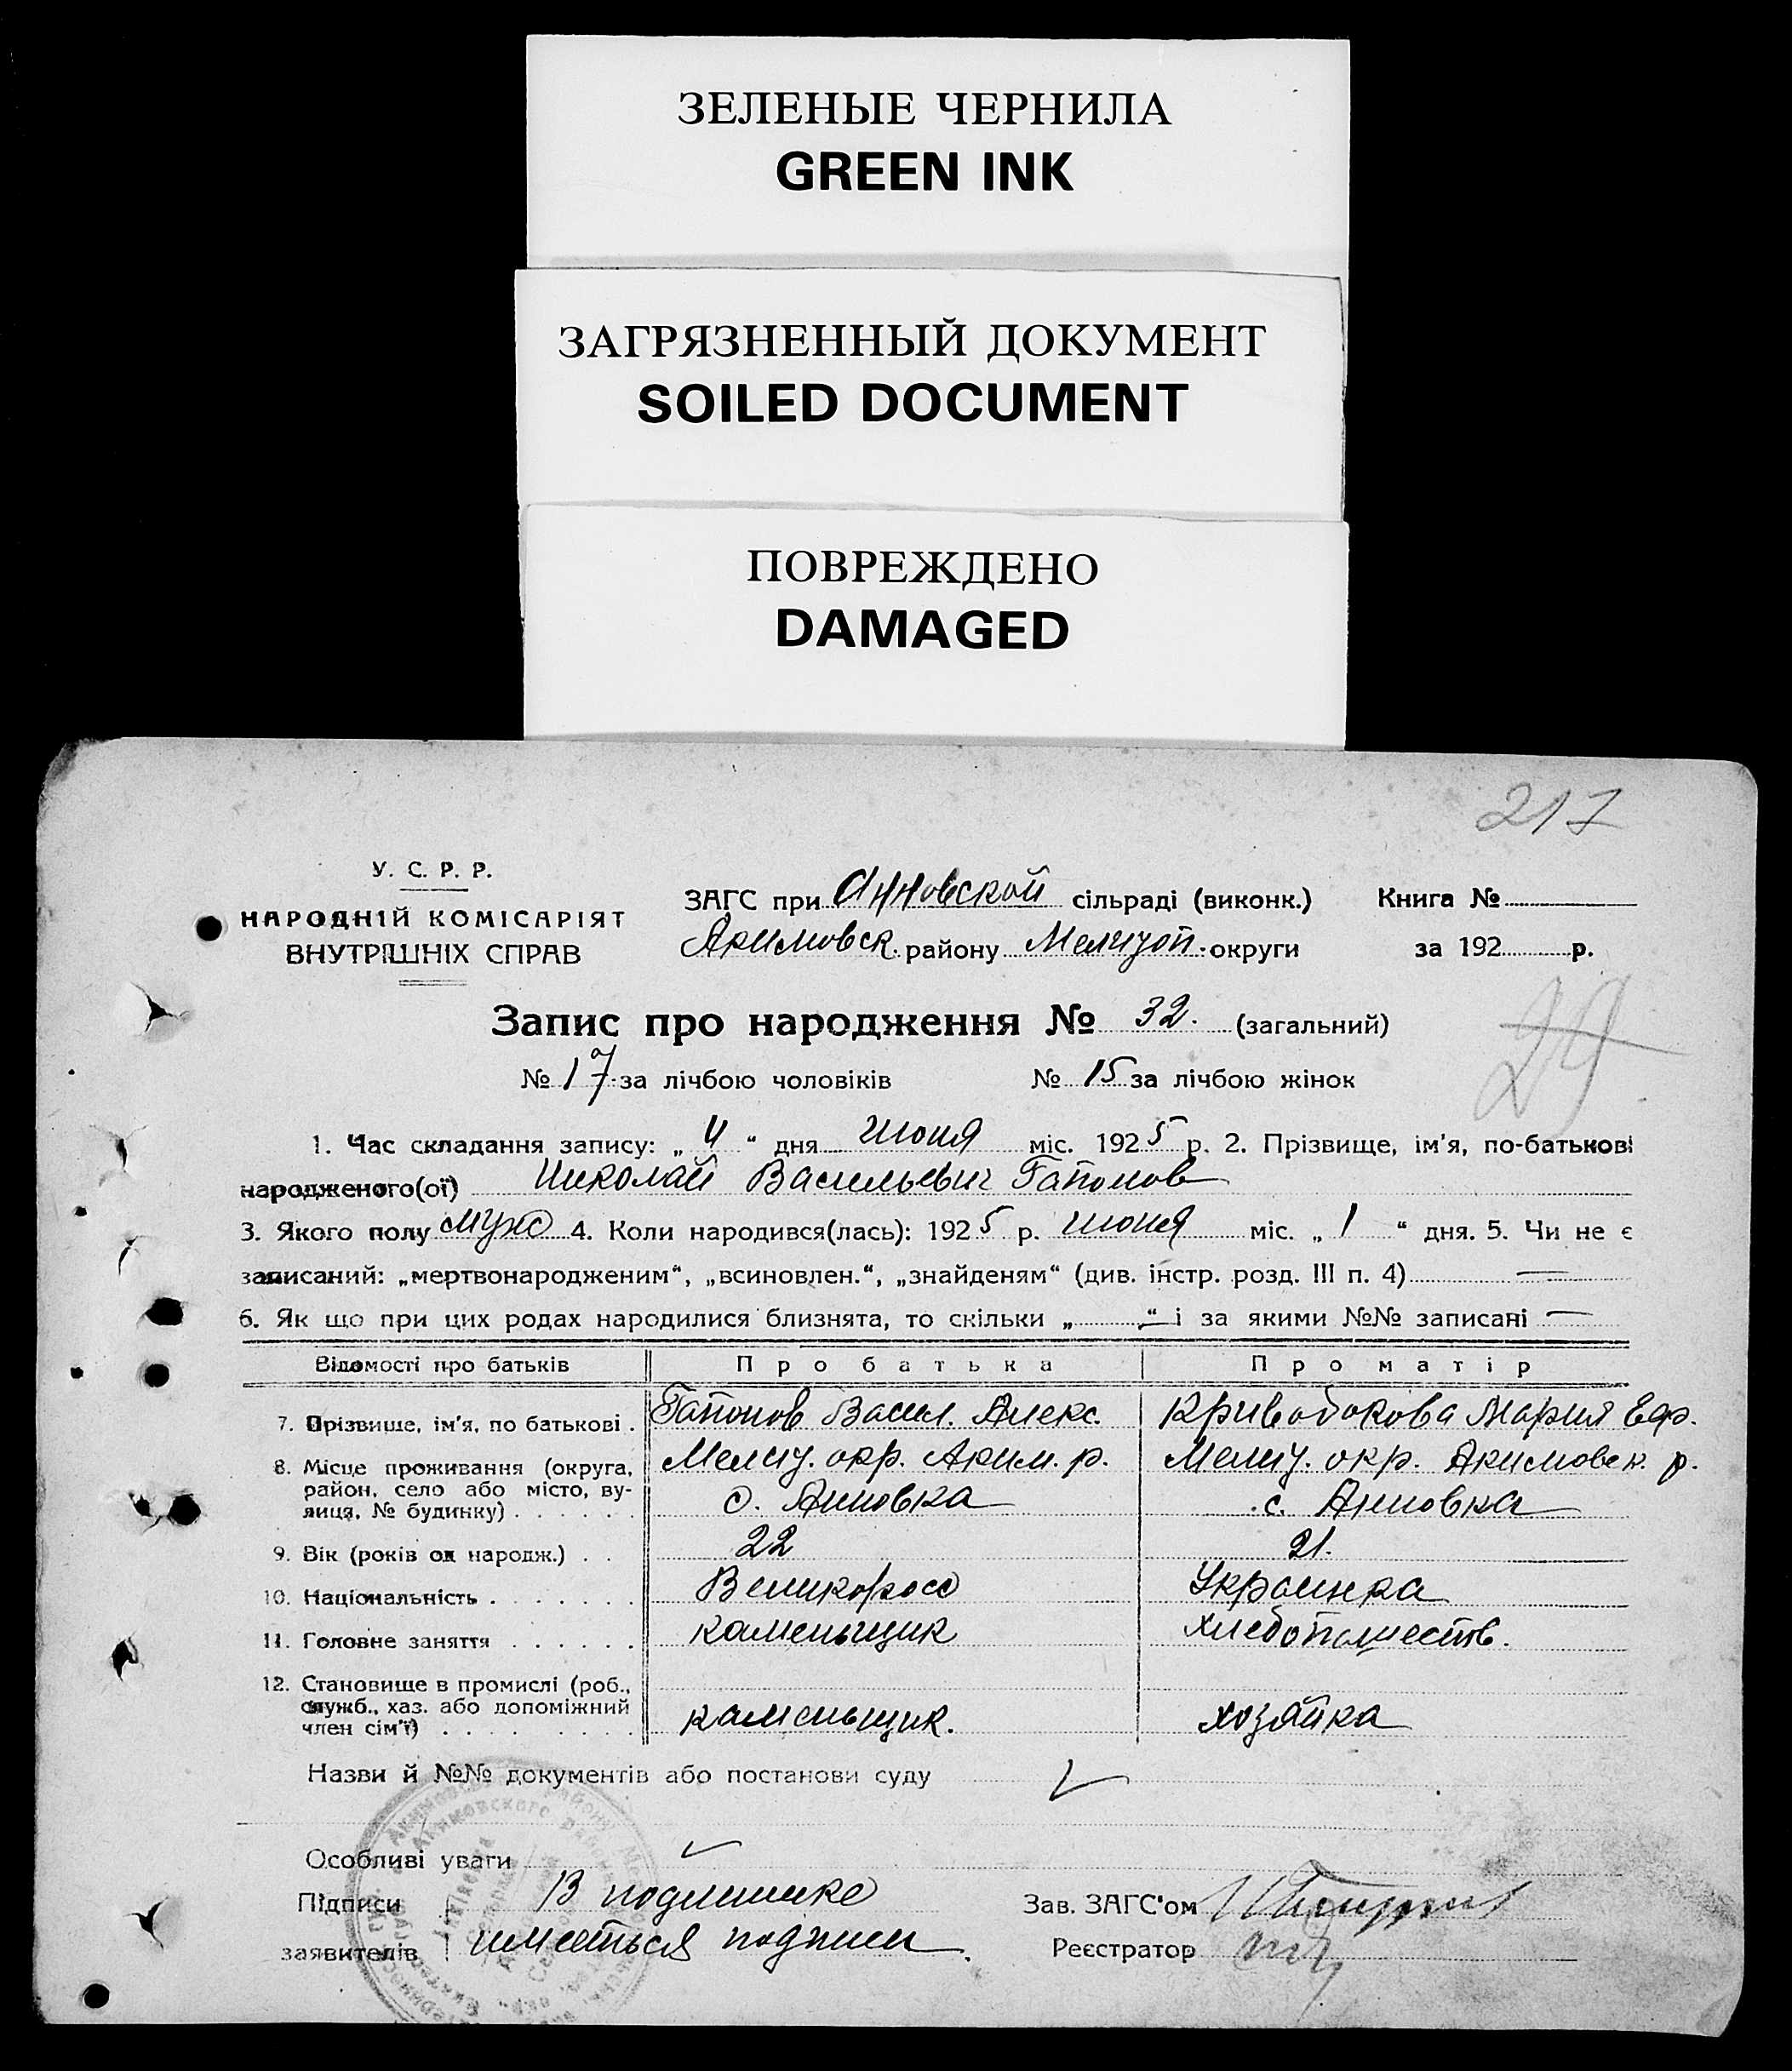 ЗЕЛЕНЫЕ ЧЕРНИЛА
GREEN INK
ЗАГРЯЗНЕННЫЙ ДОКУМЕНТ
SOILED DOCUMENT
ПОВРЕЖДЕНО
DAMAGED
217
У. С. Р. Р.
НАРОДНІЙ КОМІСАРІЯТ
ВНУТРІШНІХ СПРАВ
ЗАГС при Анновской сільраді (виконк.) Книга №
Акимовск. району Мелитоп. округи за 192 р.
29
Запис про народження № 32. (загальний)
№ 17 за лічбою чоловіків № 15 за лічбою жінок
1. Час складання запису: „ 4 “ дня июня міс. 1925 р. 2. Прізвище, ім'я, по-батькові
народженого(ої) Николай Васильевич Гапонов
3. Якого полу муж 4. Коли народився(лась): 1925 р. июня міс. „ 1 “ дня. 5. Чи не є
записаний: „мертвонародженим“, „всиновлен.“, „знайденям“ (див. інстр. розд. III п. 4) —
6. Як що при цих родах народилися близнята, то скільки „ — “ і за якими №№ записані —
Відомості про батьків Про батька Про матір
7. Прізвище, ім'я, по батькові . Гапонов Васил. Алекс. Кривобокова Мария Еф.
8. Місце проживання (округа, район, село або місто, вулиця, № будинку) . . . . . . Мелит. окр. Аким. р. Мелит. окр. Акимовск. р.
с. Анновка с. Анновка
9. Вік (років од народж.) . . 22 21.
10. Національність . . . . . . . Великоросс Украинка
11. Головне заняття . . . . . . каменьщик хлебопашеств.
12. Становище в промислі (роб., служб., хаз. або допоміжний член сім'ї) . . . . . . . . . каменьщик. хозяйка
Назви й №№ документів або постанови суду
Особливі уваги
Підписи В подлинике Зав. ЗАГС'ом
заявителів имееться подписи. Реєстратор